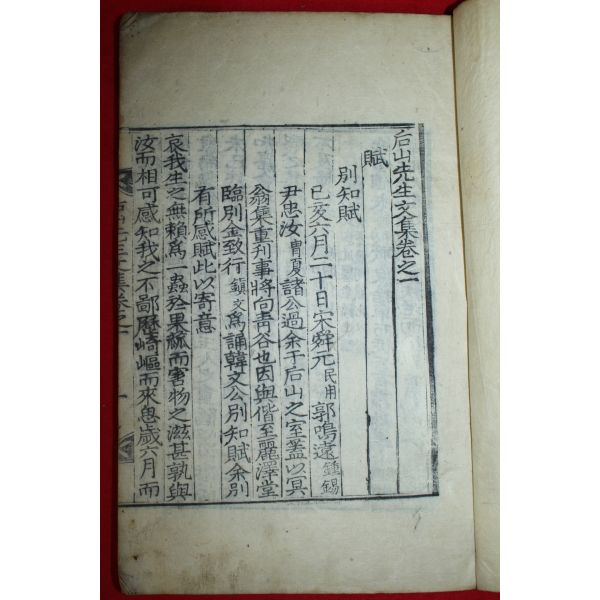 后山先生文集卷之一
賦
別知賦
己亥六月二十日宋舜元民用郭鳴遠鍾錫
尹忠汝冑夏諸公過余于后山之室蓋以冥
翁集重刊事將向靑谷也因與偕至麗澤堂
臨別金致行鎭文爲誦韓文公別知賦余別
有所感賦此以寄意
哀我生之無賴爲一蟲於果蓏而害物之滋甚孰與
汝而相可感知我之不鄙歷崎嶇而來息歲六月而
后山先生文集卷之一